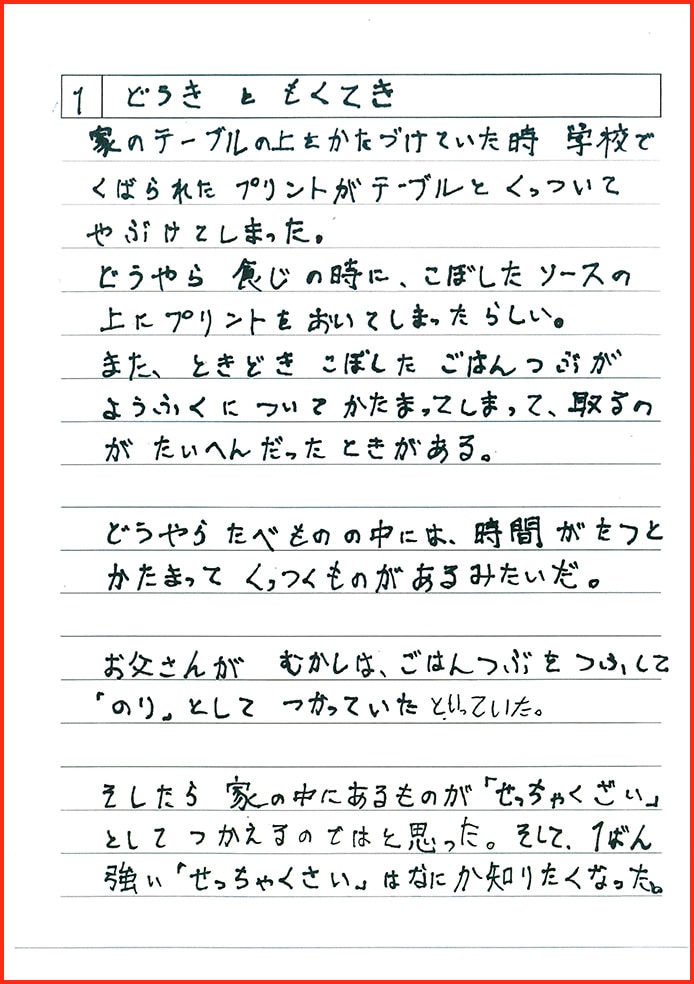 1 どうき と もくてき
家のテーブルの上をかたづけていた時 学校で
くばられた プリントがテーブルと くっついて
やぶけてしまった。
どうやら 食じの時に、こぼした ソースの
上にプリントを おいてしまったらしい。
また、ときどき こぼした ごはんつぶが
ようふくに ついて かたまってしまって、取るの
が たいへんだったときがある。
どうやら たべものの中には、時間がたつと
かたまって くっつくものがあるみたいだ。
お父さんが むかしは、ごはんつぶを つぶして
「のり」として つかっていたといっていた。
そしたら 家の中にあるものが「せっちゃくざい」
として つかえるのではと思った。そして、1ばん
強い「せっちゃくさい」はなにか知りたくなった。